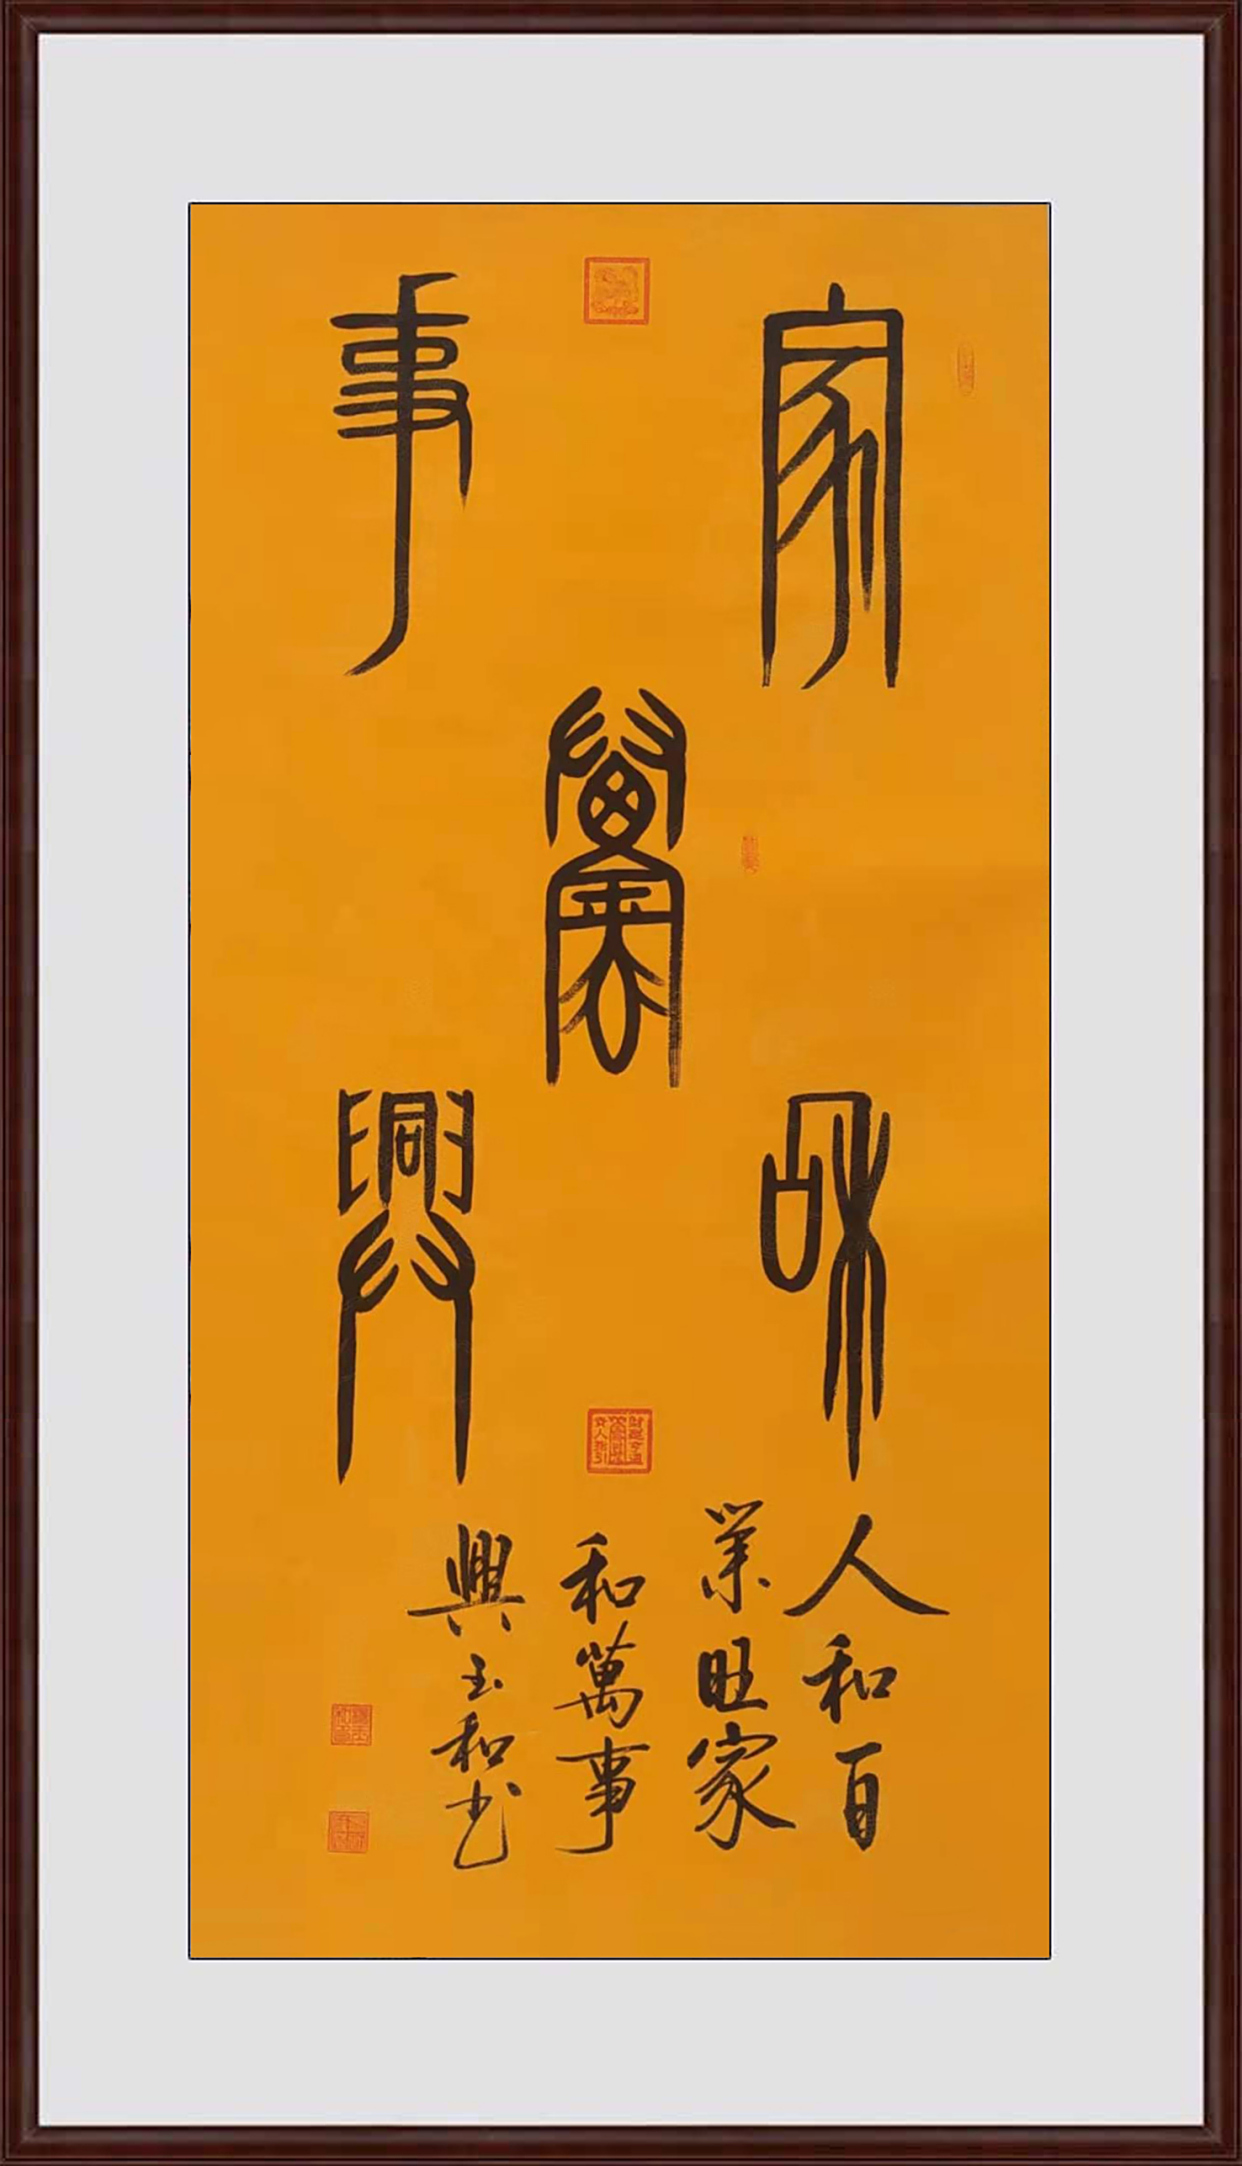 家和
萬
事興
人和百
業旺家
和萬事
興玉和书